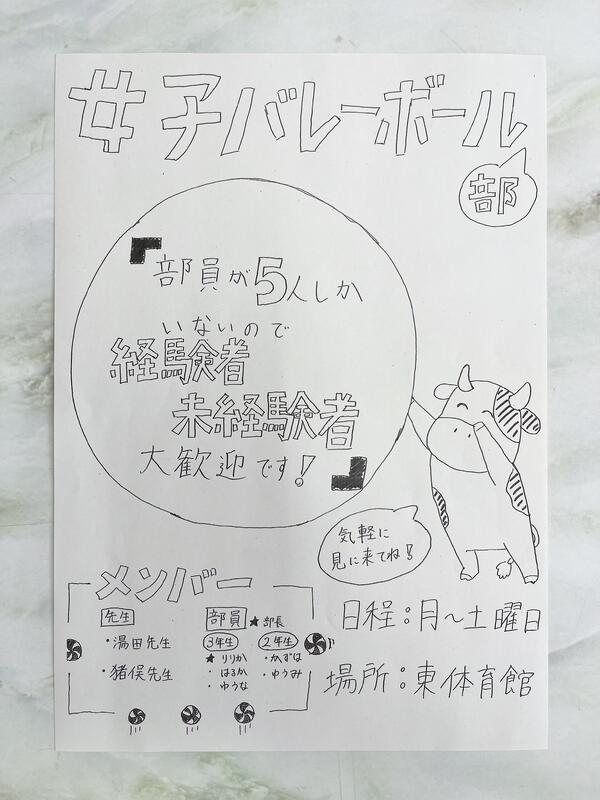 女子バレーボール
部
『部員が5人しか
いないので
経験者
未経験者
大歓迎です!』
気軽に
見に来てね!
メンバー
先生
・湯田先生
・猪俣先生
部員 ★部長
3年生 2年生
★りりか ・かずは
・はるか ・ゆうみ
・ゆうな
日程:月〜土曜日
場所:東体育館